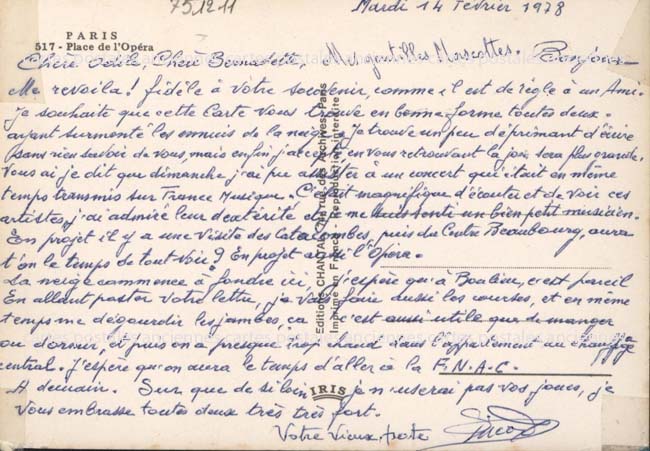 751211
Mardi 14 Février 1978
PARIS
517 - Place de l'Opéra
Chère Odile, Chère Bernadette, Mes gentilles Mascottes. Bonjour
Me revoila! fidèle à votre souvenir, comme il est de règle à un Ami.
Je souhaite que cette Carte vous trouve en bonne forme toutes deux.
ayant surmonté les ennuis de la neige, je trouve un peu déprimant d'écrire
sans rien savoir de vous, mais enfin j'accepte, en vous retrouvant la joie sera plus grande.
Vous ai je dit que dimanche j'ai pu assister à un concert qui était en même
temps transmis sur France Musique. C'était magnifique d'écouter et de voir ces
artistes, j'ai admiré leur dextérité et je me suis senti un bien petit musicien.
En projet il y a une Visite des Catacombes, puis du Centre Beaubourg, aura
t'on le temps de tout voir? En projet aussi l'Opéra.
La neige commence à fondre ici, j'espère qu'à c'est pareil
En allant poster votre lettre, je vais faire aussi les courses, et en même
temps me dégourdir les jambes, ça c'est aussi utile que de manger
ou dormir, et puis on a presque trop chaud dans l'appartement au chauffage
central. J'espère qu'on aura le temps d'aller à la F.N.A.C.
A demain. Sur que de si loin je n'userai pas vos joues, je
vous embrasse toutes deux très très fort.
Votre vieux pote
Editions CHANTAL
Imprimé en France - Reproduction interdite
IRIS